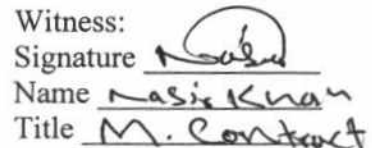 Witness:
Signature
Name Nasir Khan
Title M. Contract